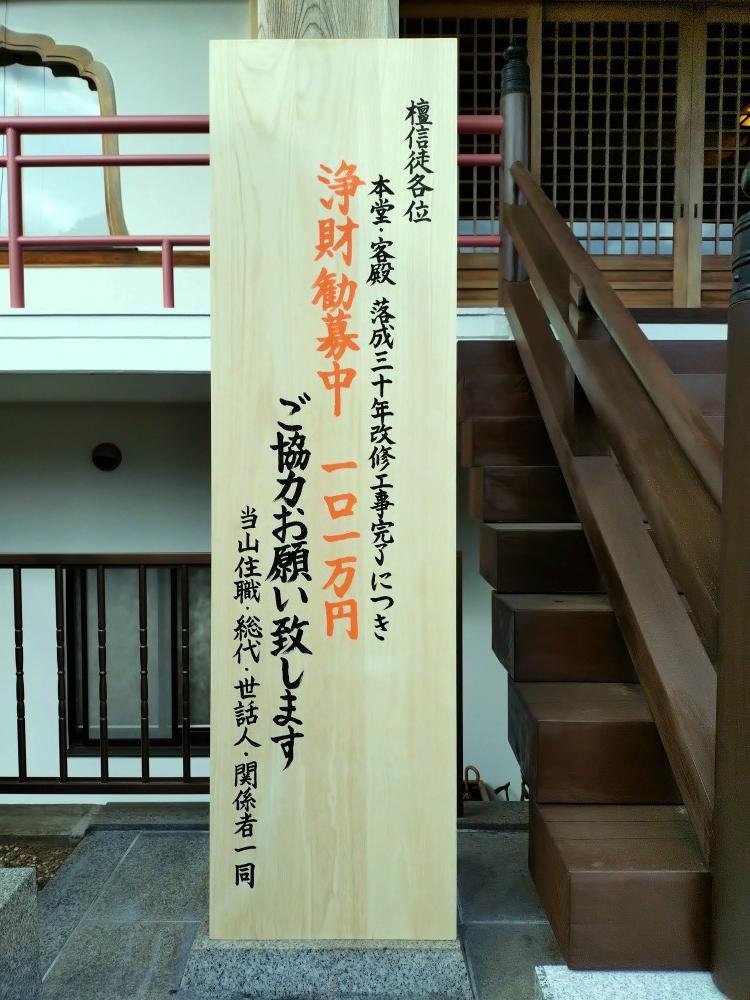 檀信徒各位
本堂・客殿 落成三十年改修工事完了につき
浄財勧募中 一口一万円
ご協力お願い致します
当山住職・総代・世話人・関係者一同